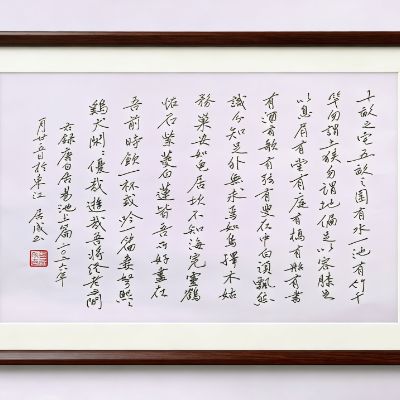 十畝之宅五畝之園有水一池有竹千
竿勿謂土狹勿謂地偏足以容膝足
以息肩有堂有庭有橋有船有書
有酒有歌有弦有叟在中白須飄然
識分知足外無求焉如鳥擇木姑
務巢安如龜居坎不知海寬靈鶴
怪石紫菱白蓮皆吾所好盡在
吾前時飲一杯或吟一篇妻孥熙熙
鷄犬閑閑優哉遊哉吾將終老之間
右錄唐白居易池上篇二〇一六年
月廿五日於東江 居